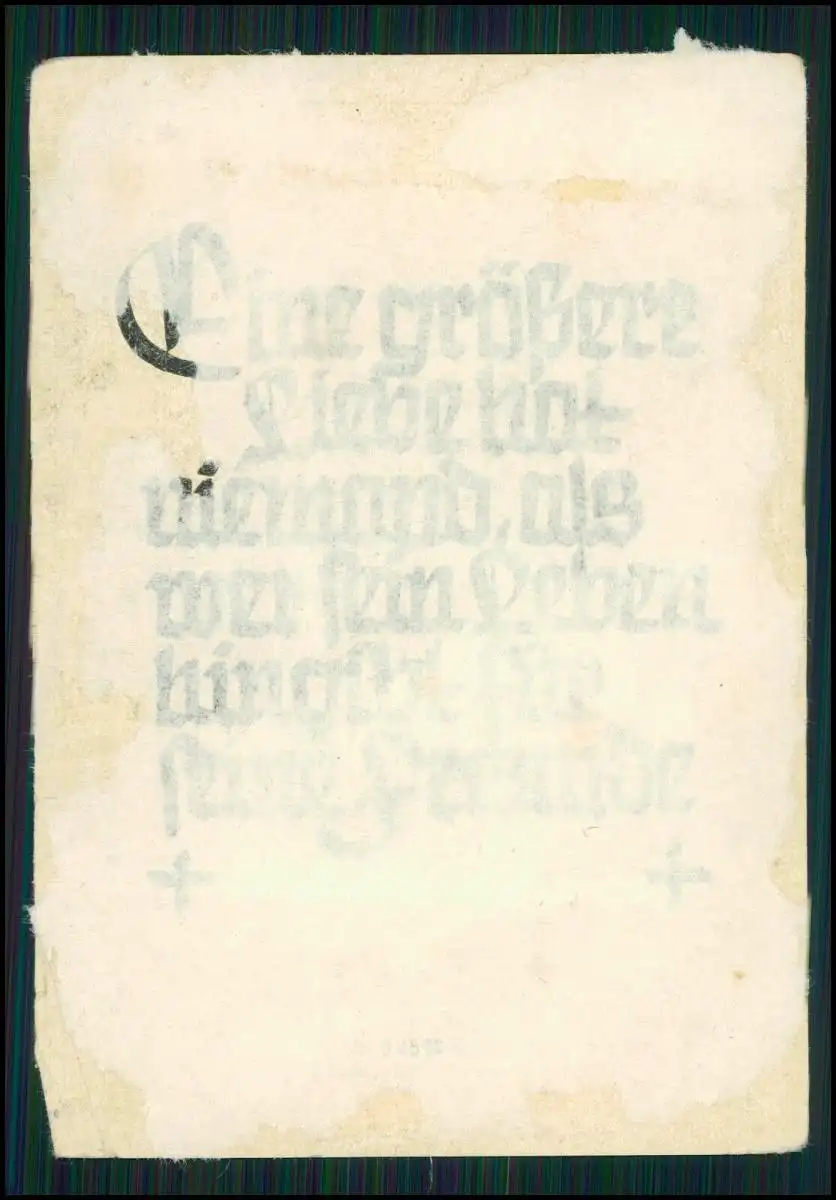 Eine größere
Liebe hat
niemand, als
wer sein Leben
hingibt für
seine Freunde